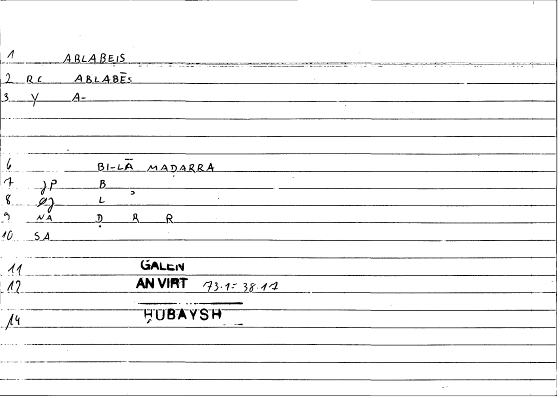 1 ABLABEIS
2 RC ABLABĒS
3 Y A-
6 BI-LĀ MAḌARRA
7 JP B
8 L
9 NA Ḍ R R
10 SA
11 GALEN
12 AN VIRT 73.1 = 38.17
14 ḤUBAYSH